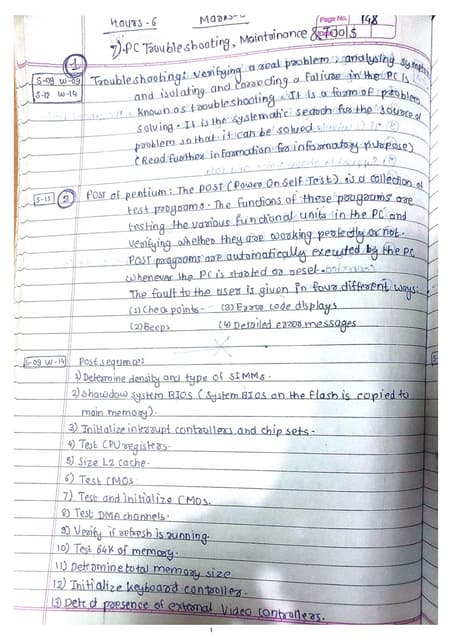 Hours - 6
Page No. 148
7). PC Troubleshooting, Maintainance & Tools
1
S-09 W-09
S-12 W-14
Troubleshooting: Verifying a real problem, analysing symptoms
and isolating and correcting a faliure in the PC is
known as troubleshooting. It is a form of problem
solving. It is the systematic search for the source of
problem so that it can be solved
(Read further information for informatory purpose)
S-15
2
POST of pentium: The POST (Power On Self Test) is a collection of
test programs. The functions of these programs are
testing the various functional units in the PC and
verifying whether they are working perfectly or not.
POST programs are automatically executed by the PC
whenever the PC is started or reset.
The fault to the user is given in four different ways:
(1) Check points (3) Error code displays
(2) Beeps (4) Detailed error messages
S-09 W-14
Post sequence:
1) Determine density and type of SIMMs.
2) Showdow system BIOS (System BIOS on the Flash is copied to
main memory).
3) Initialize interrupt controllers and chip sets-
4) Test CPU registers.
5) Size L2 cache.
6) Test CMOS
7) Test and Initialize CMOS.
8) Test DMA channels.
9) Verify if refresh is running.
10) Test 64K of memory.
11) Determine total memory size
12) Initialize keyboard controller.
13) Detect presence of external video controllers.
1